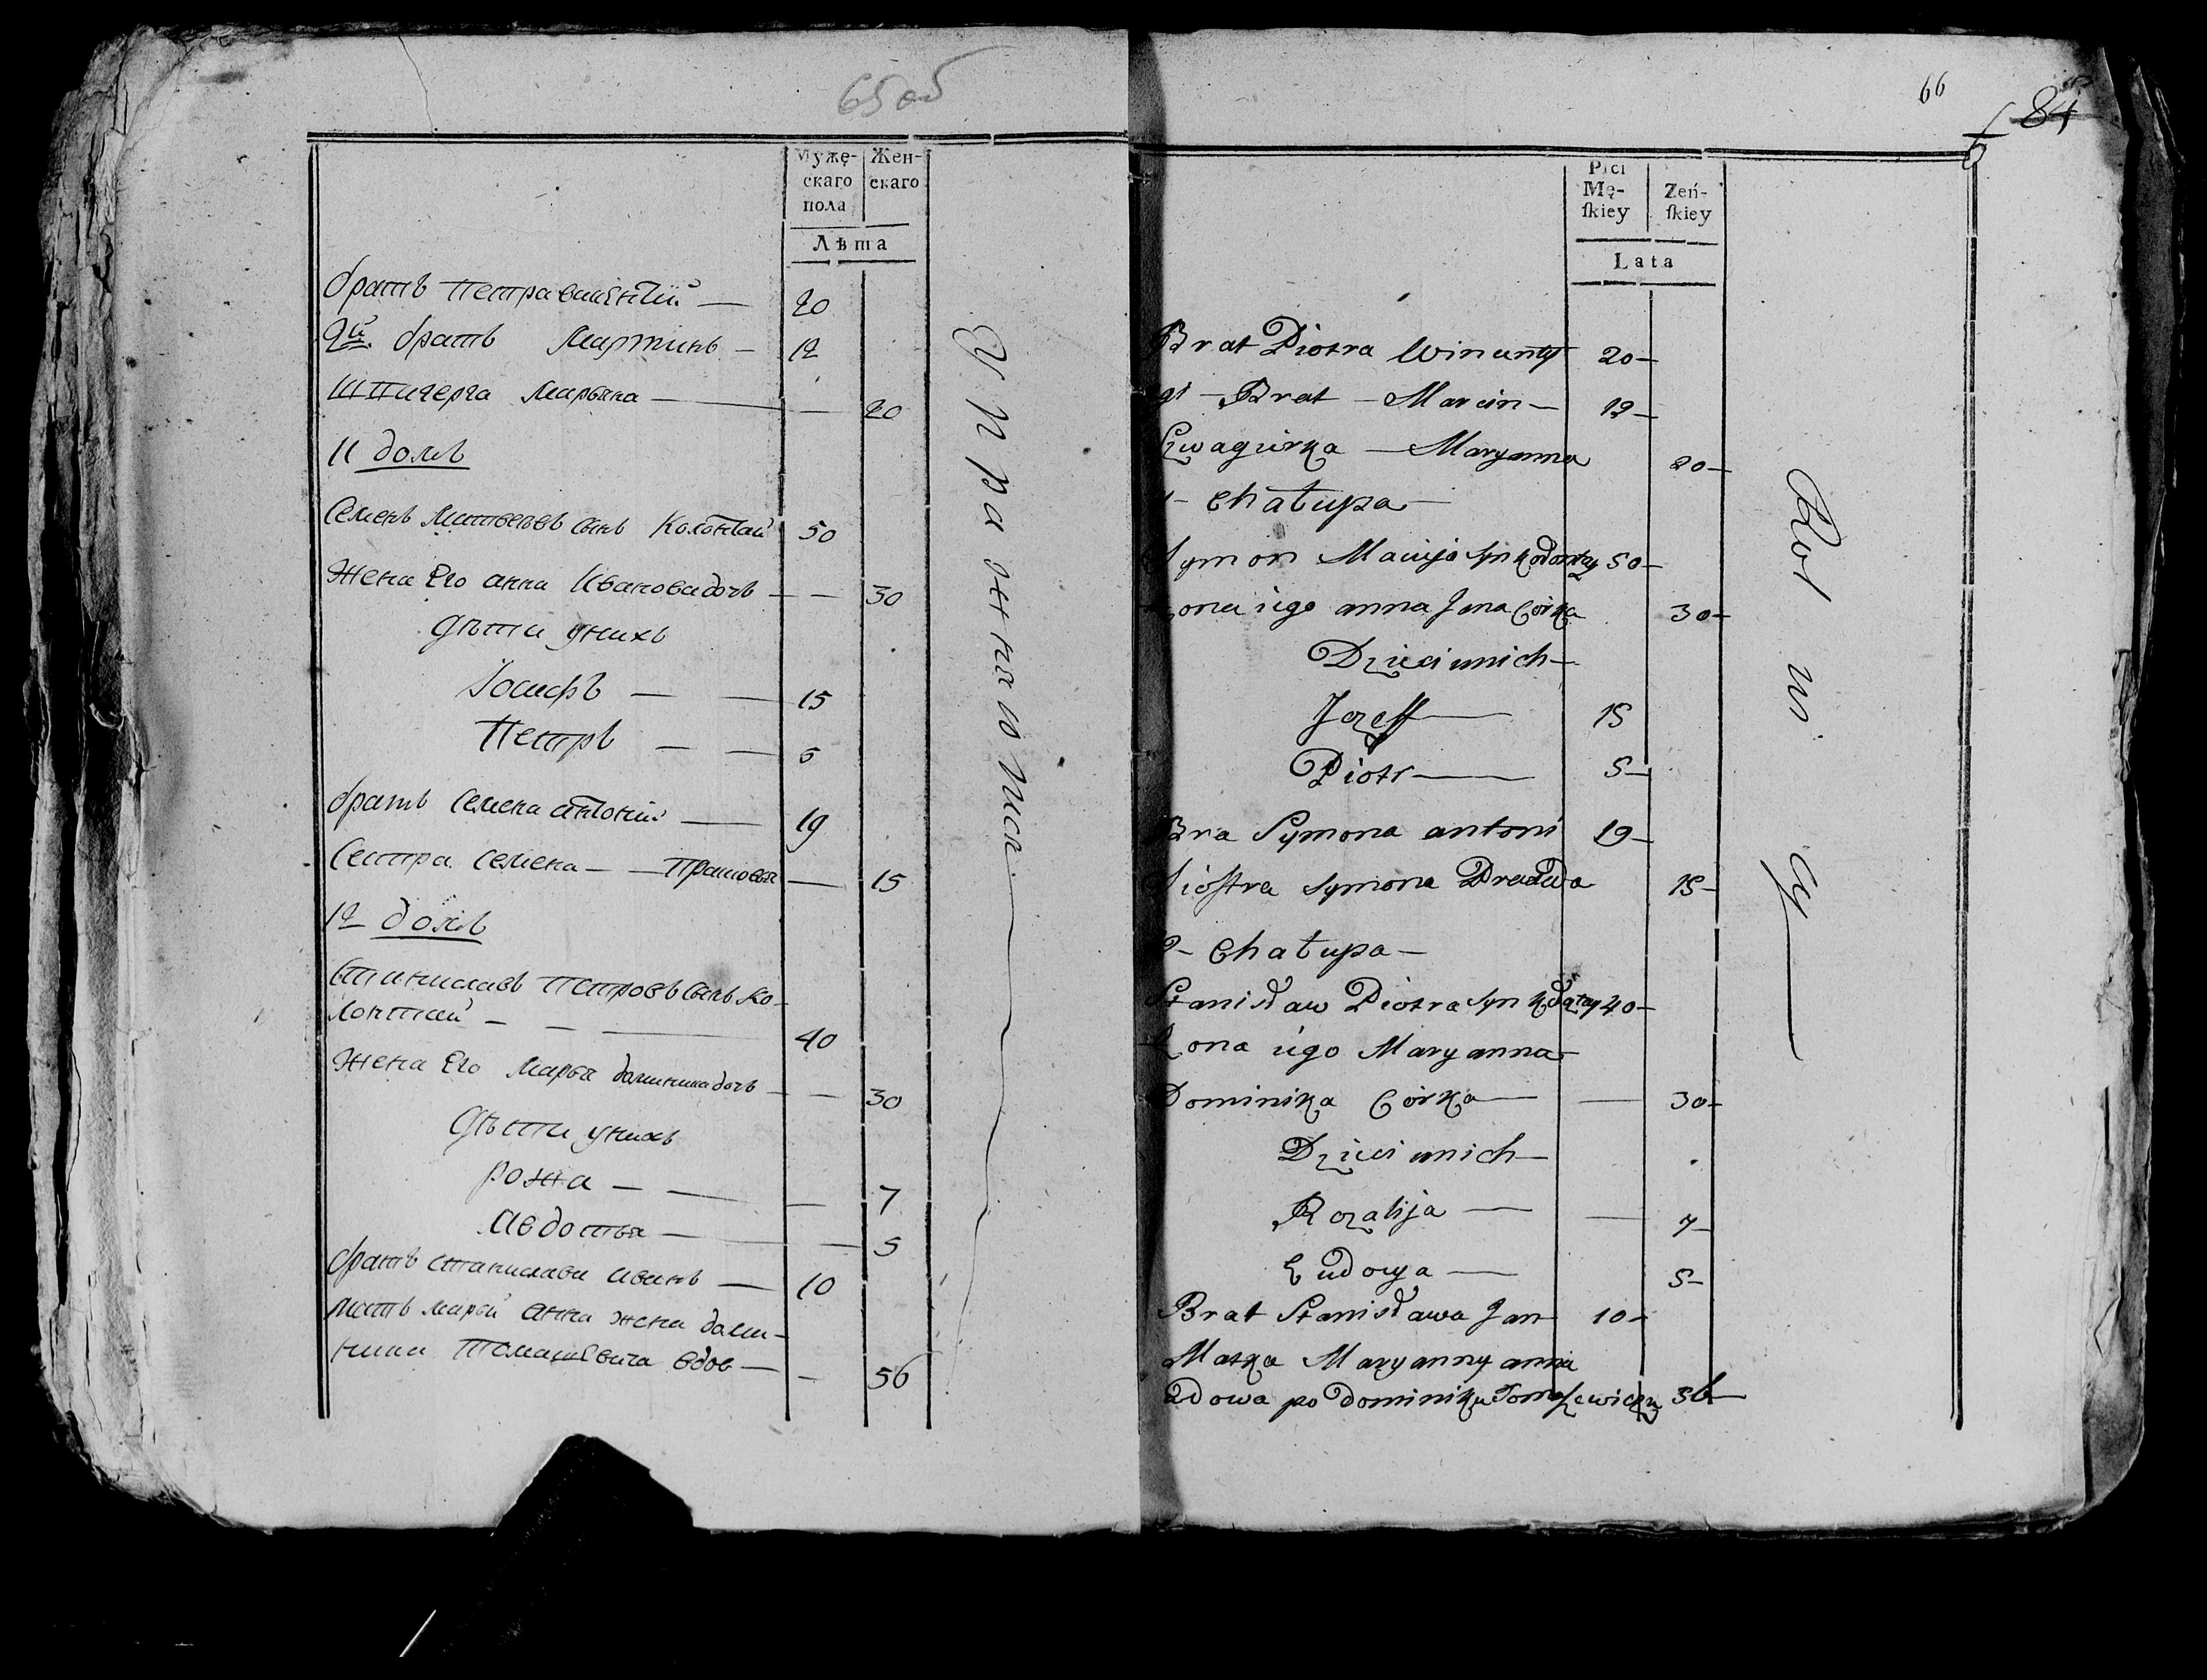 65 об
Муже-
скаго
пола
Жен-
скаго
Лѣта
братъ Петра винентий — 20
2й. братъ Мартинъ — 12
Швигерга Марьяна — — 20
11 домъ
Семенъ Матвеевъ сынъ Колонтай 50
Жена Его анна Ивановадочь — — 30
дѣти унихъ
Іосифъ — — 15
Петръ — — 5
братъ Семена антоний — 19
Сестра Семена — — — 15
12 домъ
Станиславъ Петровъ сынъ Ко-
лонтай — — — 40
Жена Его Марья доминика дочь — — 30
дѣти унихъ
Рожа — — — 7
Авдотья — — 5
братъ станислава иванъ — 10
мать марьи анна жена доми-
ника Томашевича вдов — — 56
Упражняютца
66
84
Płci
Mę-
ſkiey
Zeń-
ſkiey
Lata
Brat Piotra Winunty 20 —
gi — Brat — Marcin — 12 —
Szwagirka — Maryanna 20 —
1 — Chałupa —
Symon Macieja Syn Kołontay 50 —
Zona iego anna Jana Córka 30 —
Dzieci unich —
Jozeff — 15
Piotr — 5 —
Bra Symona antoni 19 —
Siostra Symona 15 —
2 — Chałupa —
Stanisław Piotra Syn Kołątay 40 —
Zona iego Maryanna —
Dominika Córka — — 30 —
Dzieci unich —
Rozalija — — 7 —
Eudocya — 5 —
Brat Stanisława Jan 10 —
Matka Maryanny anna
Wdowa po Dominiku Tomaszewiczu 56 —
Rolnicy